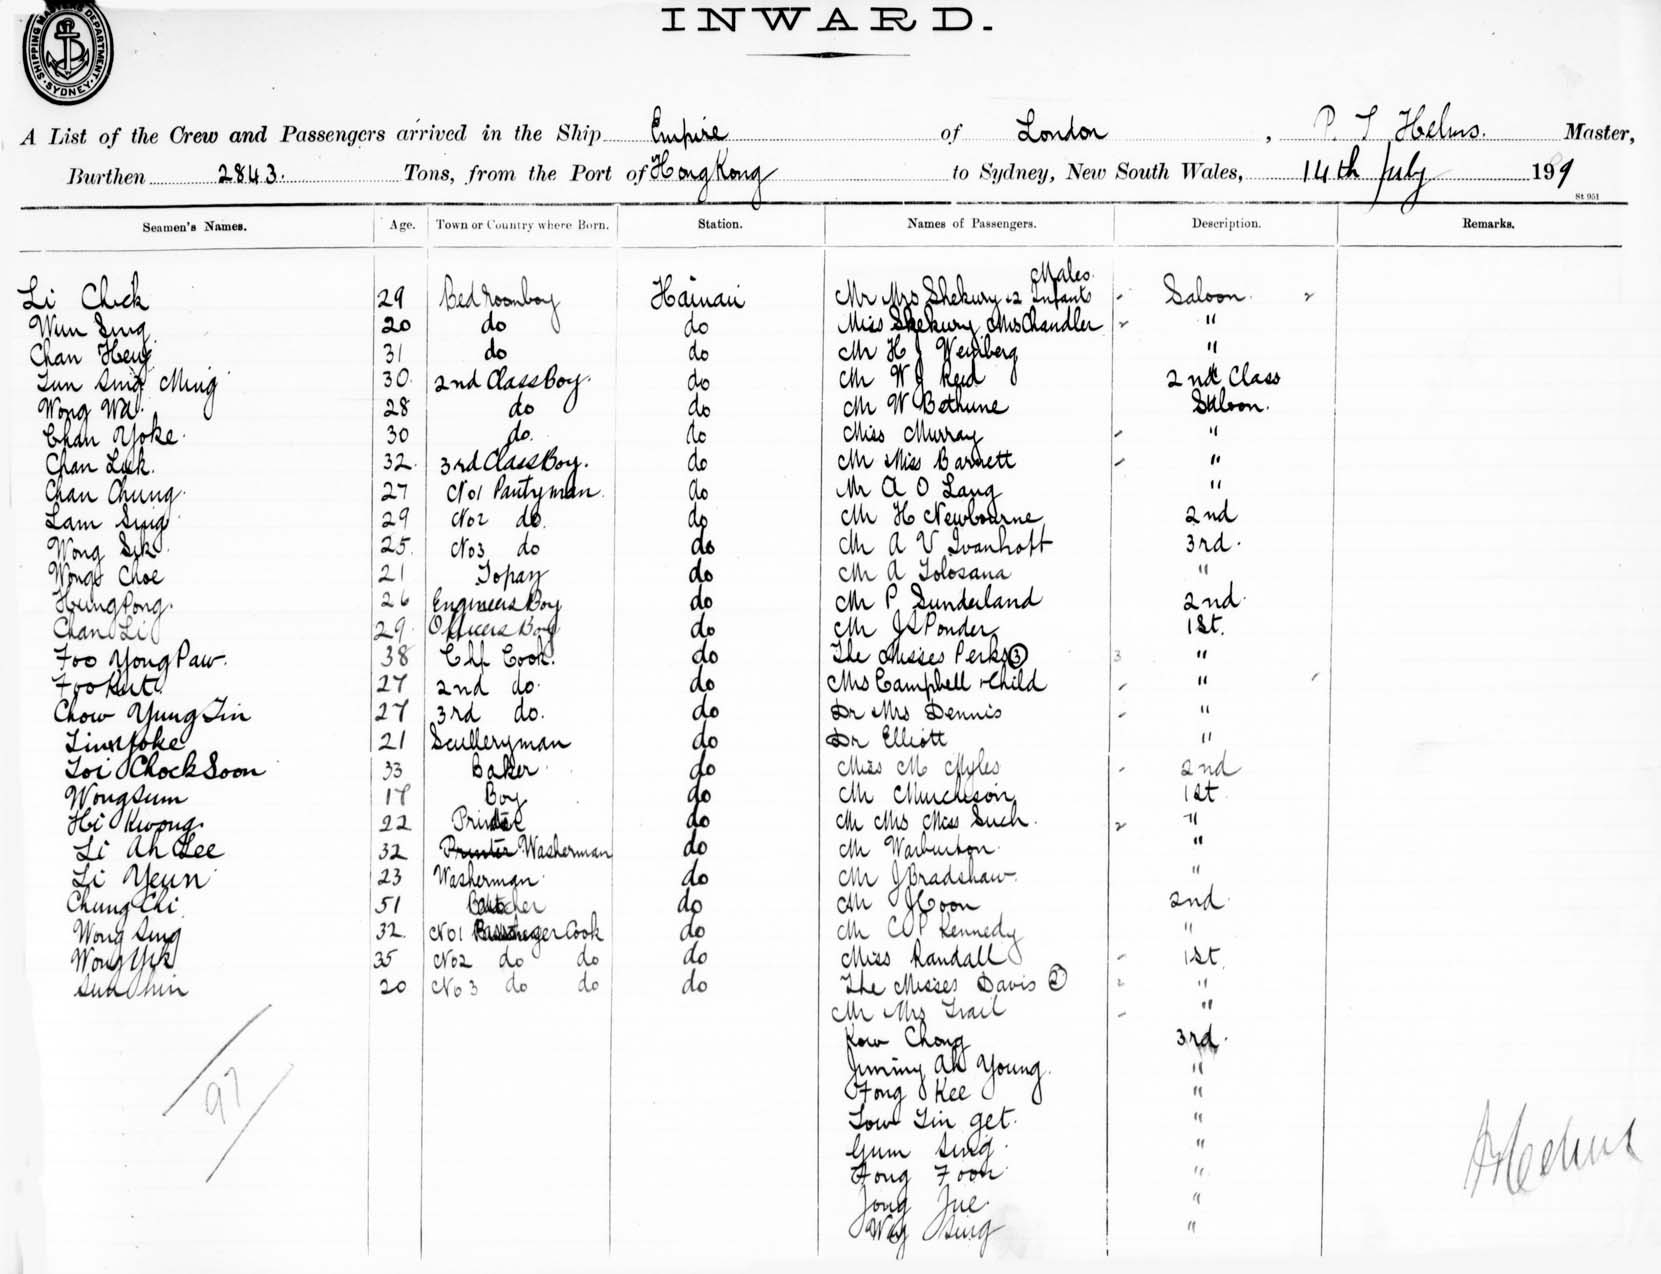 SHIPPING MASTERS DEPARTMENT. SYDNEY.
INWARD.
A List of the Crew and Passengers arrived in the Ship Empire of London, P. T Helms. Master,
Burthen 2843. Tons, from the Port of Hong Kong to Sydney, New South Wales, 14th July 19
St 951
Seamen's Names. Age. Town or Country where Born. Station. Names of Passengers. Description. Remarks.
Males.
Li Chick 29 Bedroomboy Hainan Mr Mrs Shekury & 2 Infants Saloon
Wun Sing 20 do do Miss Shekury Mrs Chandler "
Chan Heng 31 do do Mr H J Weinberg "
Tun Sing Ming 30 2nd Class Boy. do Mr W J Reid 2nd Class
Wong Wa 28 do do Mr W Bethune Saloon.
Chan Yoke 30 do. do Miss Murray "
Chan Luk. 32 3rd Class Boy. do Mr Miss Barnett "
Chan Chung 27 No1 Pantryman do Mr A O Lang "
Lam Sing 29 No2 do. do Mr H Newbourne 2nd
Wong Sik 25. No3 do do Mr A V Ivanhoff 3rd.
Wong Choe 21 Topay do Mr A Tolosana "
Hung Pong. 26 Engineers Boy do Mr P Sunderland 2nd.
Chan Li 29 Officers Boy do Mr J S Ponder 1st.
Foo Yong Paw. 38 Chf Cook. do The Misses Perks (3) 3 "
Foo Kut 27 2nd do. do Mrs Campbell & Child "
Chow Yung Tin 27 3rd do. do Dr Mrs Dennis "
Lin Yoke 21 Scullery man do Dr Elliott "
Loi Chock Soon 33 Baker do Miss M Myles 2nd
Wong Sum 17 Boy do Mr Murchison 1st
Hi Kwong. 22 do Mr Mrs Miss Such. "
Li Ah Lee 32 Printer Washerman do Mr Warburton. "
Li Yeun 23 Washerman do Mr J Bradshaw. "
Chung Chi 51 Butcher do Mr J Coon 2nd
Wong Sing 32. No1 Passenger Cook do Mr C P Kennedy "
Wong Yik 35 No2 do do do Miss Randall 1st.
Sun Shin 20 No3 do do do The Misses Davis (2) 2 "
Mr Mrs Trail "
Kow Chong 3rd.
Jimmy Ah Young. "
Fong Kee "
Low Tin get. "
Gum Sing "
Fong Foon "
Jong Jue. "
Way Sing "
97
Helms